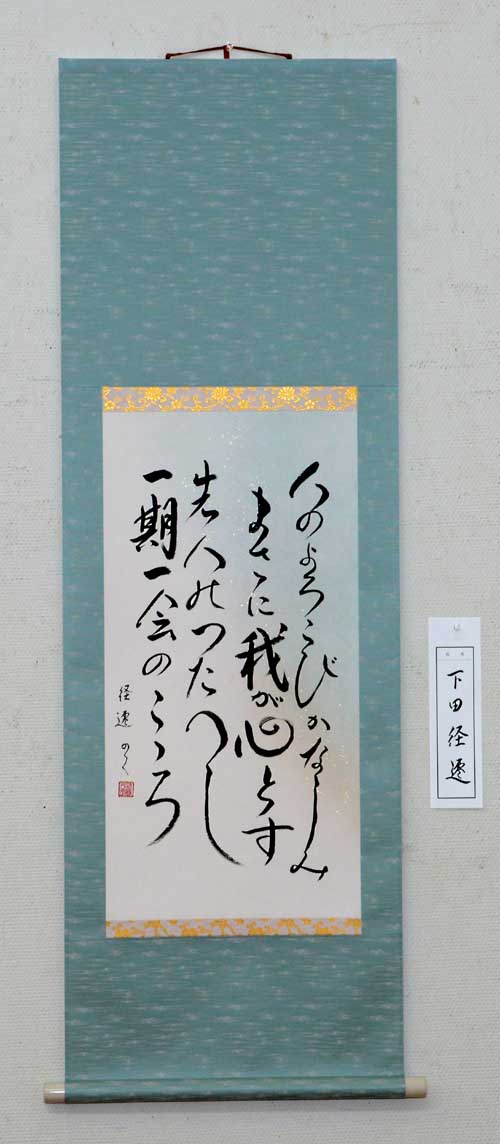 人のよろこびかなしみ
まさに我が心とす
先人のつたへし
一期一会のこゝろ
経遷 かく
下田経遷